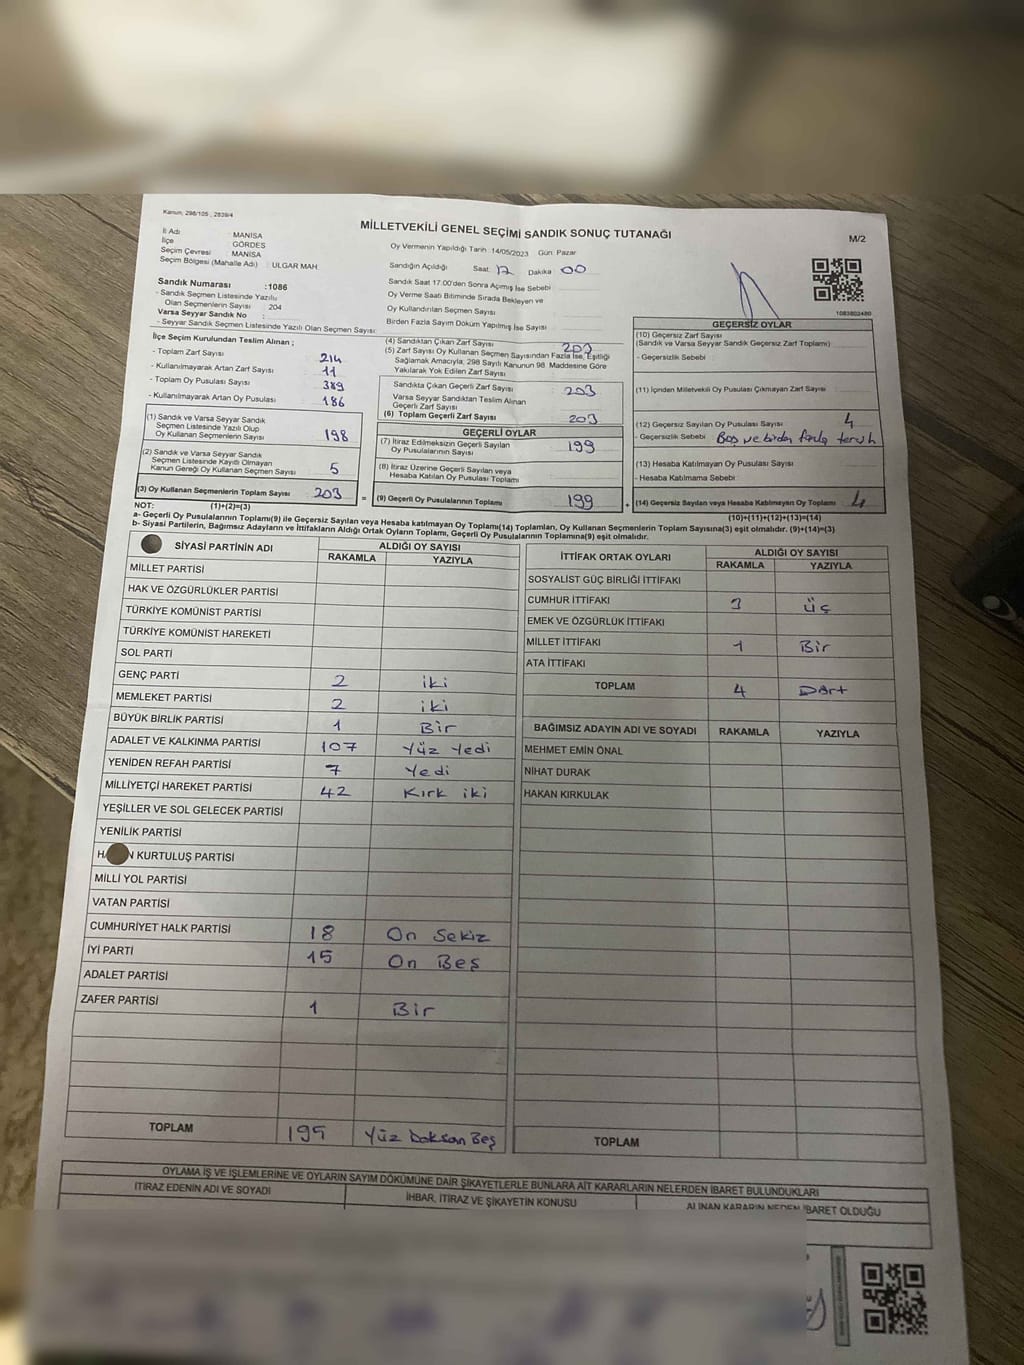 Kanun; 298/105 , 2839/4
MİLLETVEKİLİ GENEL SEÇİMİ SANDIK SONUÇ TUTANAĞI
M/2
İl Adı : MANİSA
İlçe : GÖRDES
Seçim Çevresi : MANİSA
Seçim Bölgesi (Mahalle Adı) : ULGAR MAH.
Oy Vermenin Yapıldığı Tarih: 14/05/2023 Gün: Pazar
Sandığın Açıldığı Saat: 17 Dakika: 00
Sandık Saat 17:00'den Sonra Açılmış İse Sebebi
Oy Verme Saati Bitiminde Sırada Bekleyen ve
Oy Kullandırılan Seçmen Sayısı
Birden Fazla Sayım Döküm Yapılmış İse Sayısı
Sandık Numarası :1086
- Sandık Seçmen Listesinde Yazılı
Olan Seçmenlerin Sayısı : 204
Varsa Seyyar Sandık No :
- Seyyar Sandık Seçmen Listesinde Yazılı Olan Seçmen Sayısı:
İlçe Seçim Kurulundan Teslim Alınan ;
- Toplam Zarf Sayısı 214
- Kullanılmayarak Artan Zarf Sayısı 11
- Toplam Oy Pusulası Sayısı 389
- Kullanılmayarak Artan Oy Pusulası 186
(1) Sandık ve Varsa Seyyar Sandık
Seçmen Listesinde Yazılı Olup
Oy Kullanan Seçmenlerin Sayısı 198
(2) Sandık ve Varsa Seyyar Sandık
Seçmen Listesinde Kayıtlı Olmayan
Kanun Gereği Oy Kullanan Seçmen Sayısı 5
(3) Oy Kullanan Seçmenlerin Toplam Sayısı 203
(1)+(2)=(3)
(4) Sandıktan Çıkan Zarf Sayısı 203
(5) Zarf Sayısı Oy Kullanan Seçmen Sayısından Fazla İse, Eşitliği
Sağlamak Amacıyla, 298 Sayılı Kanunun 98. Maddesine Göre
Yakılarak Yok Edilen Zarf Sayısı
Sandıkta Çıkan Geçerli Zarf Sayısı 203
Varsa Seyyar Sandıktan Teslim Alınan
Geçerli Zarf Sayısı
(6) Toplam Geçerli Zarf Sayısı 203
GEÇERLİ OYLAR
(7) İtiraz Edilmeksizin Geçerli Sayılan
Oy Pusulalarının Sayısı 199
(8) İtiraz Üzerine Geçerli Sayılan veya
Hesaba Katılan Oy Pusulası Toplamı
= (9) Geçerli Oy Pusulalarının Toplamı 199
1083802480
GEÇERSİZ OYLAR
(10) Geçersiz Zarf Sayısı
(Sandık ve Varsa Seyyar Sandık Geçersiz Zarf Toplamı)
- Geçersizlik Sebebi
(11) İçinden Milletvekili Oy Pusulası Çıkmayan Zarf Sayısı
(12) Geçersiz Sayılan Oy Pusulası Sayısı 4
- Geçersizlik Sebebi : Boş ve birden fazla tercih
(13) Hesaba Katılmayan Oy Pusulası Sayısı
- Hesaba Katılmama Sebebi
+ (14) Geçersiz Sayılan veya Hesaba Katılmayan Oy Toplamı 4
(10)+(11)+(12)+(13)=(14)
NOT:
a- Geçerli Oy Pusulalarının Toplamı(9) ile Geçersiz Sayılan veya Hesaba katılmayan Oy Toplamı(14) Toplamları, Oy Kullanan Seçmenlerin Toplam Sayısına(3) eşit olmalıdır. (9)+(14)=(3)
b- Siyasi Partilerin, Bağımsız Adayların ve İttifakların Aldığı Ortak Oyların Toplamı, Geçerli Oy Pusulalarının Toplamına(9) eşit olmalıdır.
SİYASİ PARTİNİN ADI ALDIĞI OY SAYISI
RAKAMLA YAZIYLA
MİLLET PARTİSİ
HAK VE ÖZGÜRLÜKLER PARTİSİ
TÜRKİYE KOMÜNİST PARTİSİ
TÜRKİYE KOMÜNİST HAREKETİ
SOL PARTİ
GENÇ PARTİ 2 iki
MEMLEKET PARTİSİ 2 iki
BÜYÜK BİRLİK PARTİSİ 1 Bir
ADALET VE KALKINMA PARTİSİ 107 Yüz Yedi
YENİDEN REFAH PARTİSİ 7 Yedi
MİLLİYETÇİ HAREKET PARTİSİ 42 Kırk iki
YEŞİLLER VE SOL GELECEK PARTİSİ
YENİLİK PARTİSİ
KURTULUŞ PARTİSİ
MİLLİ YOL PARTİSİ
VATAN PARTİSİ
CUMHURİYET HALK PARTİSİ 18 On Sekiz
İYİ PARTİ 15 On Beş
ADALET PARTİSİ
ZAFER PARTİSİ 1 Bir
TOPLAM 195 Yüz Doksan Beş
İTTİFAK ORTAK OYLARI ALDIĞI OY SAYISI
RAKAMLA YAZIYLA
SOSYALİST GÜÇ BİRLİĞİ İTTİFAKI
CUMHUR İTTİFAKI 3 üç
EMEK VE ÖZGÜRLÜK İTTİFAKI
MİLLET İTTİFAKI 1 Bir
ATA İTTİFAKI
TOPLAM 4 Dört
BAĞIMSIZ ADAYIN ADI VE SOYADI RAKAMLA YAZIYLA
MEHMET EMİN ÖNAL
NİHAT DURAK
HAKAN KIRKULAK
TOPLAM
OYLAMA İŞ VE İŞLEMLERİNE VE OYLARIN SAYIM DÖKÜMÜNE DAİR ŞİKAYETLERLE BUNLARA AİT KARARLARIN NELERDEN İBARET BULUNDUKLARI
İTİRAZ EDENİN ADI VE SOYADI
İHBAR, İTİRAZ VE ŞİKAYETİN KONUSU
ALINAN KARARIN NEDEN İBARET OLDUĞU